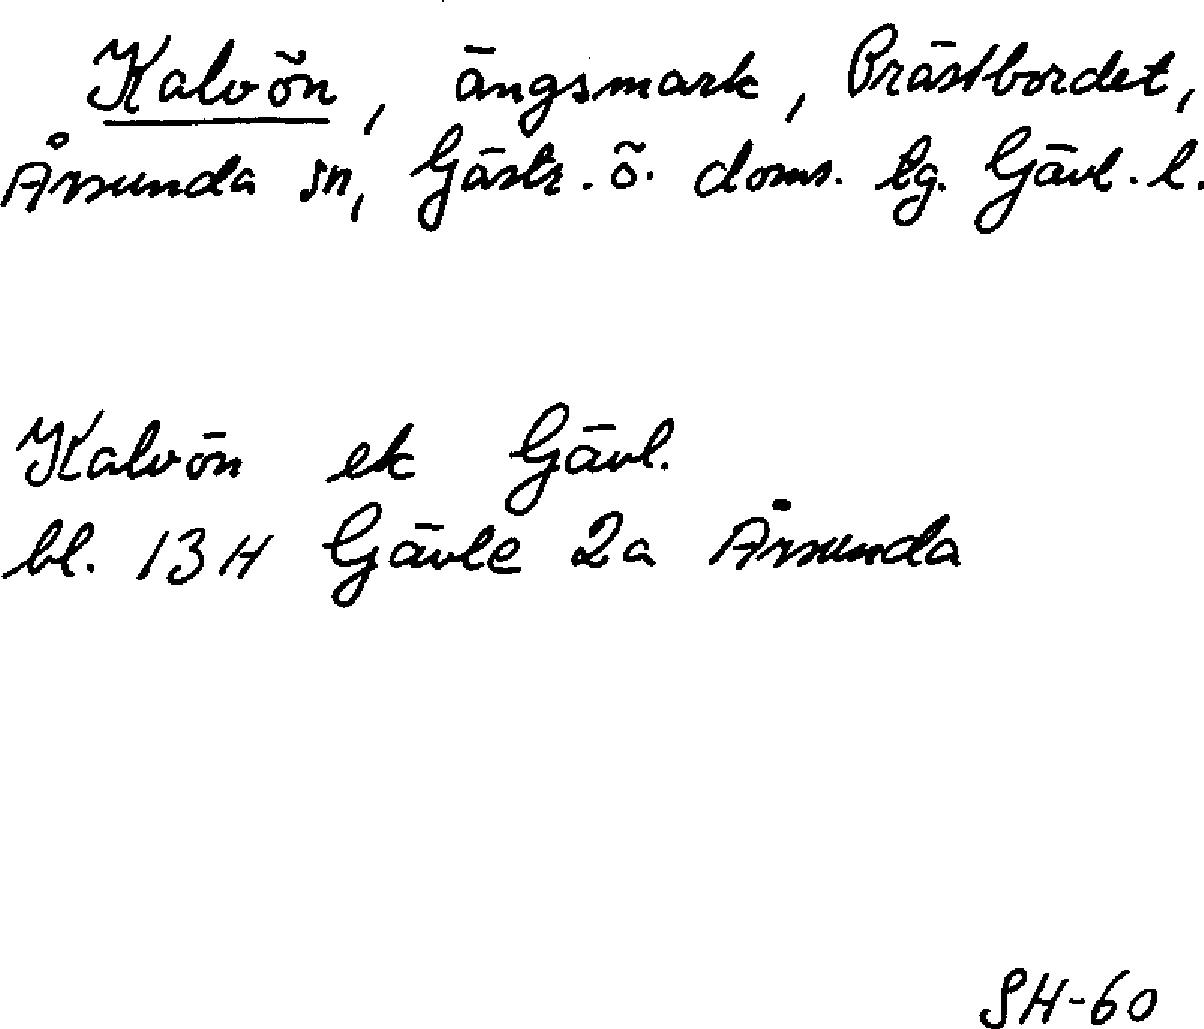 Kalvön, ängsmark, Prästbordet,
Årsunda sn, Gästr. ö. doms. tg. Gävl. l.
Kalvön ek Gävl.
bl. 13 H Gävle 2a Årsunda
SH-60